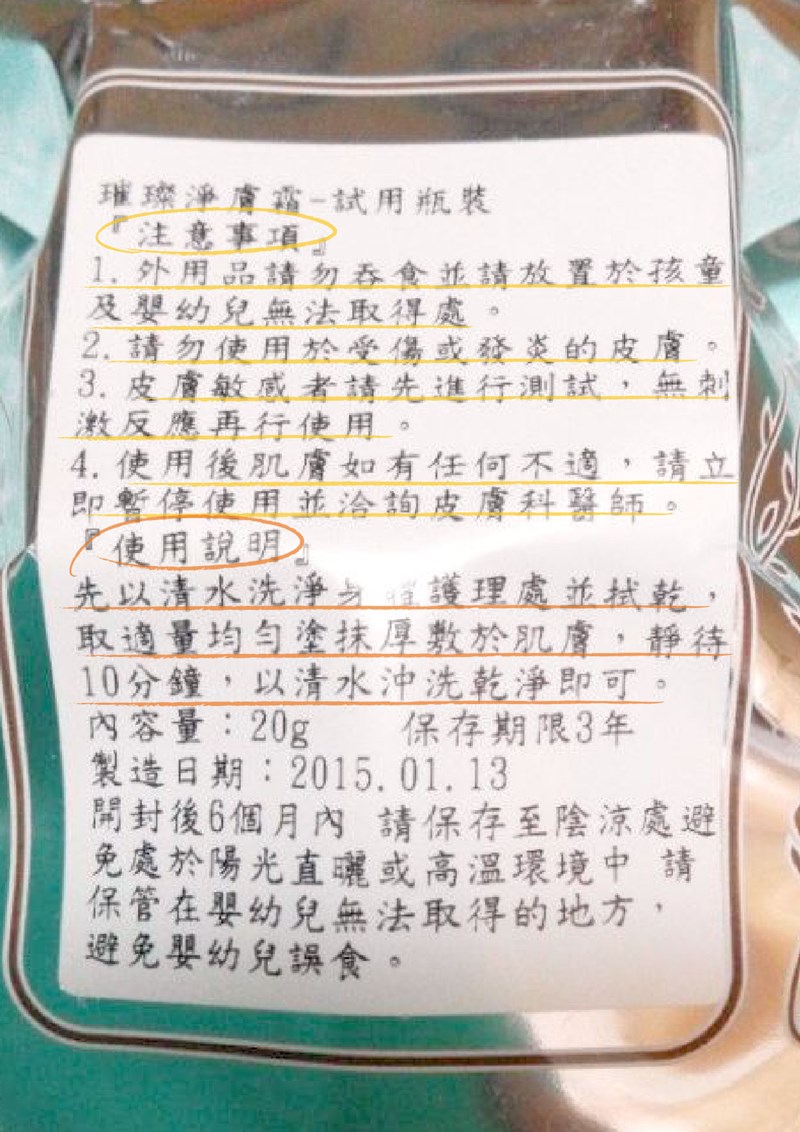 璀璨淨膚霜-試用瓶裝
『注意事項』
1. 外用品請勿吞食並請放置於孩童
及嬰幼兒無法取得處。
2. 請勿使用於受傷或發炎的皮膚。
3. 皮膚敏感者請先進行測試，無刺
激反應再行使用。
4. 使用後肌膚如有任何不適，請立
即暫停使用並洽詢皮膚科醫師。
『使用說明』
先以清水洗淨身 護理處並拭乾，
取適量均勻塗抹厚敷於肌膚，靜待
10分鐘，以清水沖洗乾淨即可。
內容量：20g 保存期限3年
製造日期：2015.01.13
開封後6個月內 請保存至陰涼處避
免處於陽光直曬或高溫環境中 請
保管在嬰幼兒無法取得的地方，
避免嬰幼兒誤食。